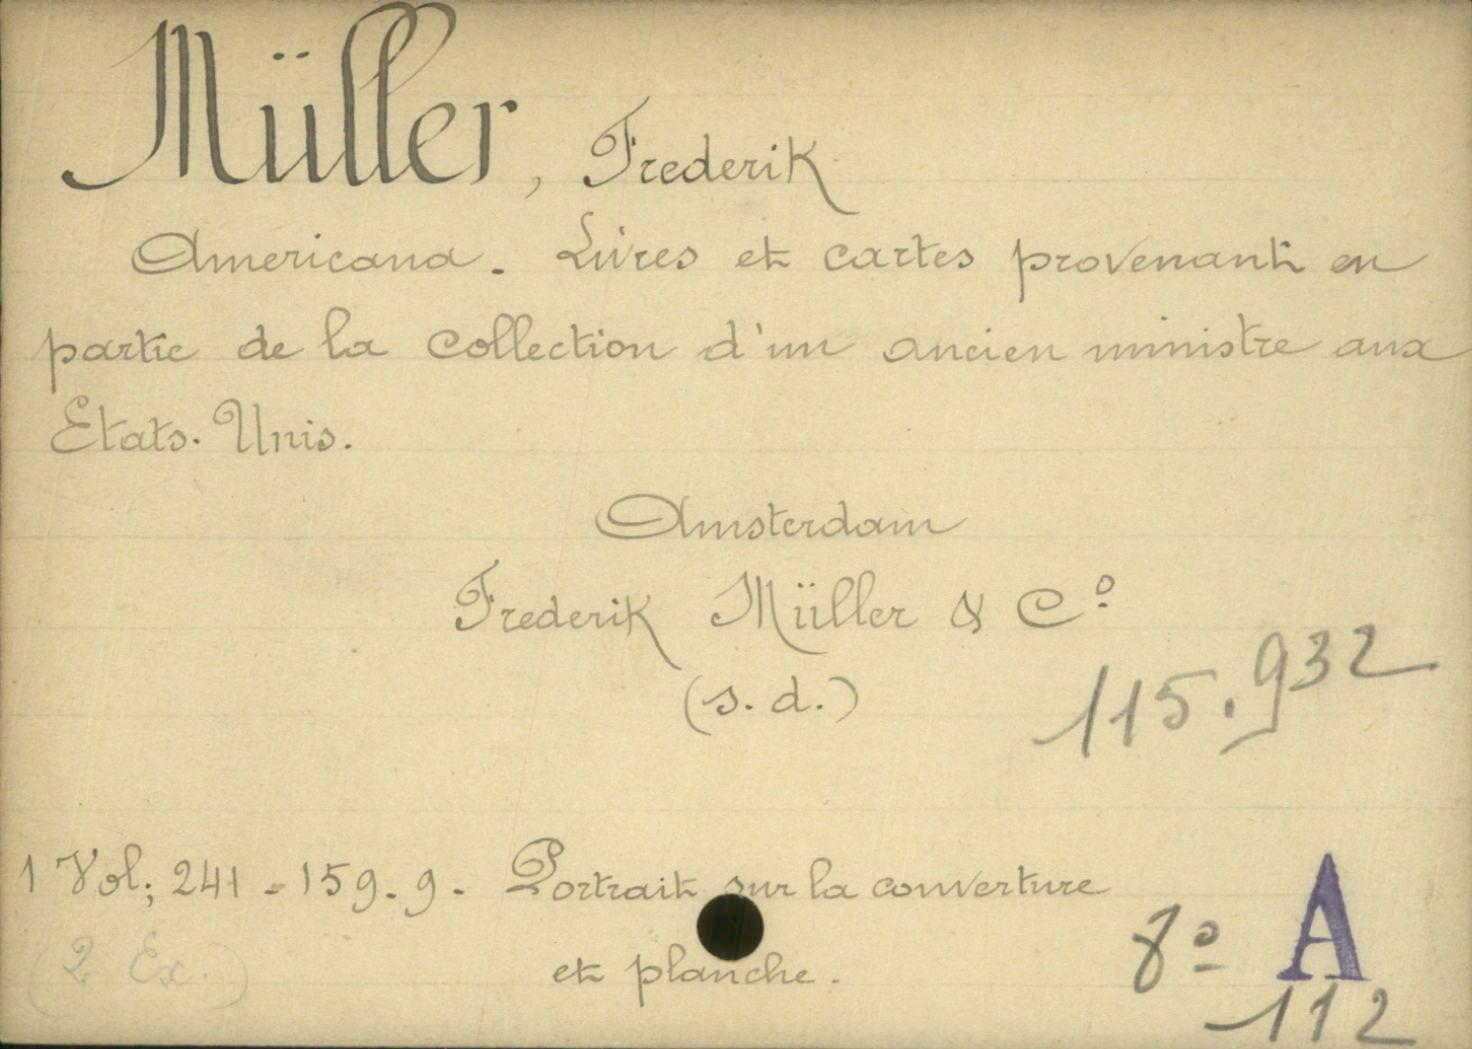 Müller, Frederik
Americana. Livres et cartes provenant en
partie de la collection d'un ancien ministre aux
Etats-Unis.
Amsterdam
Frederik Müller & Cº
(s. d.)
115.932
1 Vol; 241 - 159. 9. Portrait sur la couverture
et planche.
(2 Ex.)
8º A
112